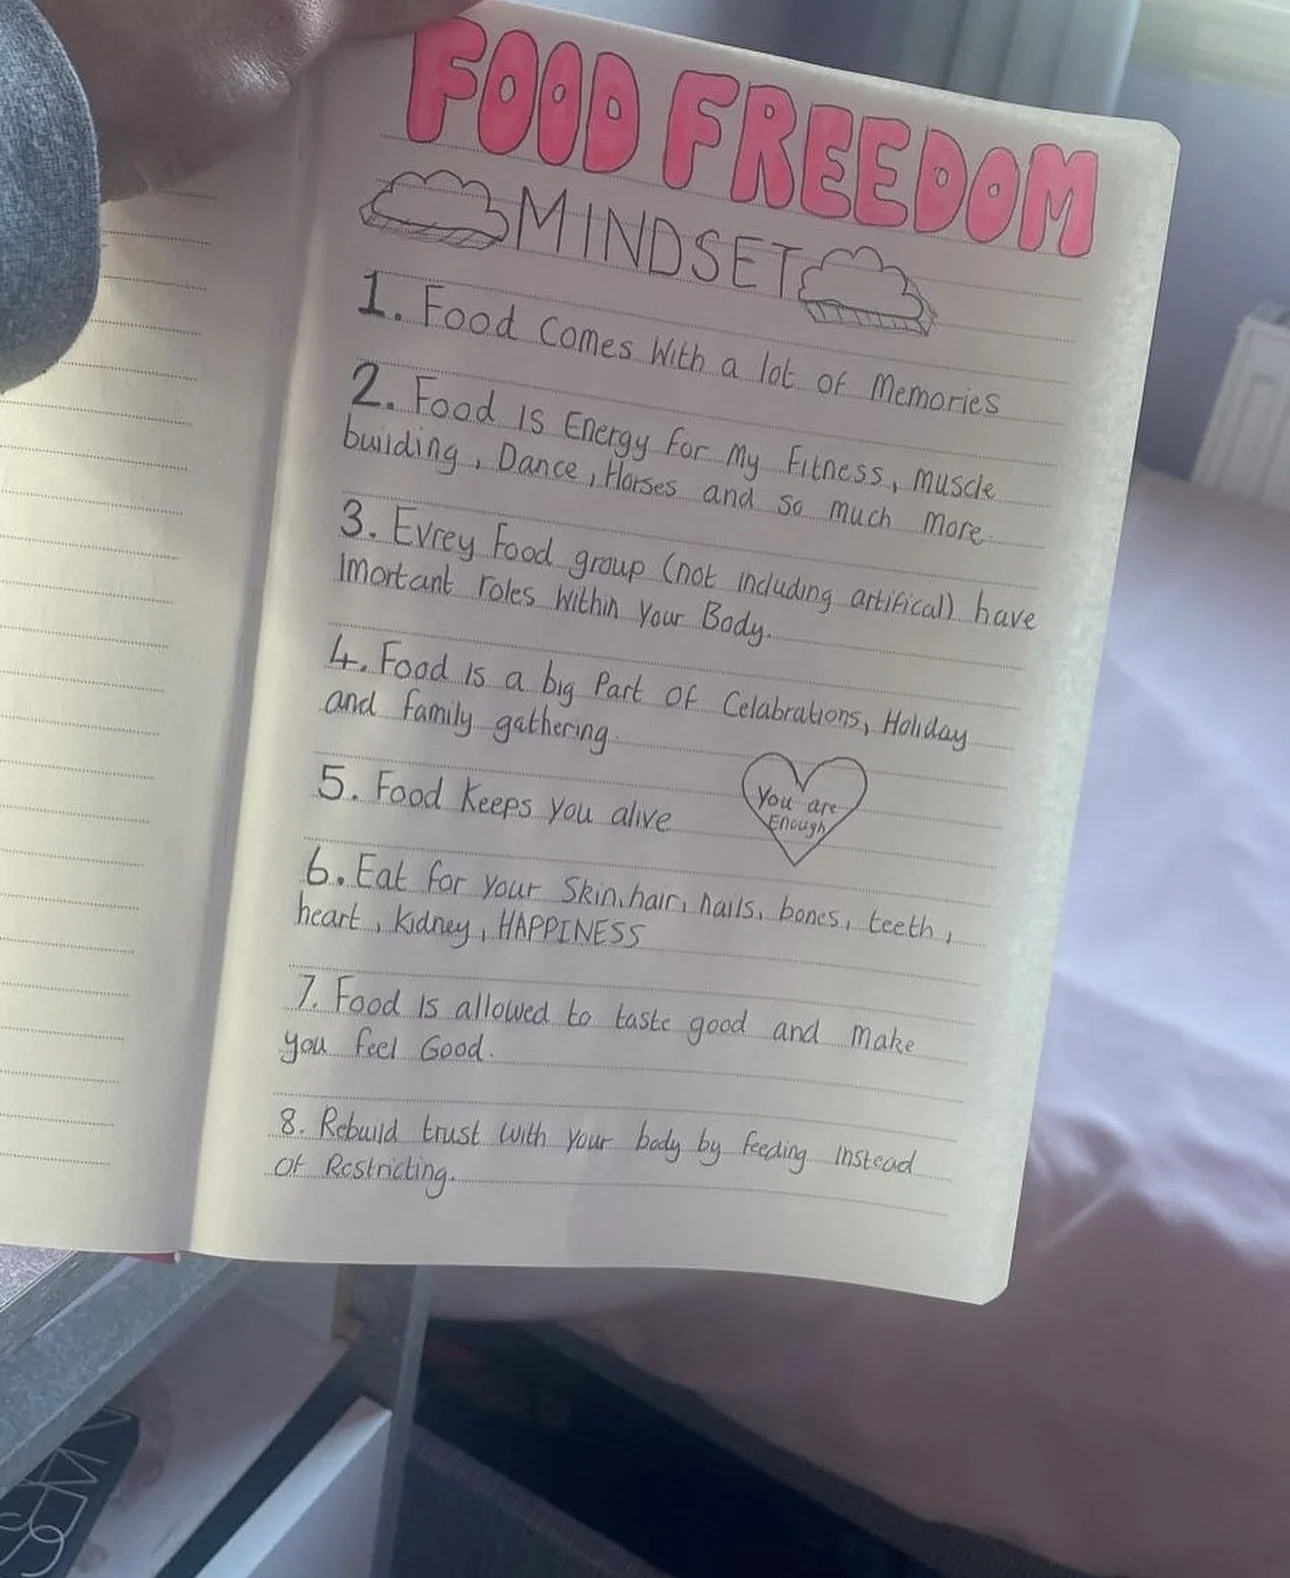 FOOD FREEDOM
MINDSET
1. Food Comes With a lot of Memories
2. Food is Energy for My Fitness, muscle
building, Dance, Horses and so much more
3. Evrey Food group (not including artifical) have
Imortant roles Within Your Body.
4. Food is a big Part of Celabrations, Holiday
and family gathering
5. Food Keeps you alive
You are
Enough
6. Eat for your Skin, hair, nails, bones, teeth,
heart, kidney, HAPPINESS
7. Food is allowed to taste good and make
you feel Good.
8. Rebuild trust with your body by feeding instead
of Restricting.